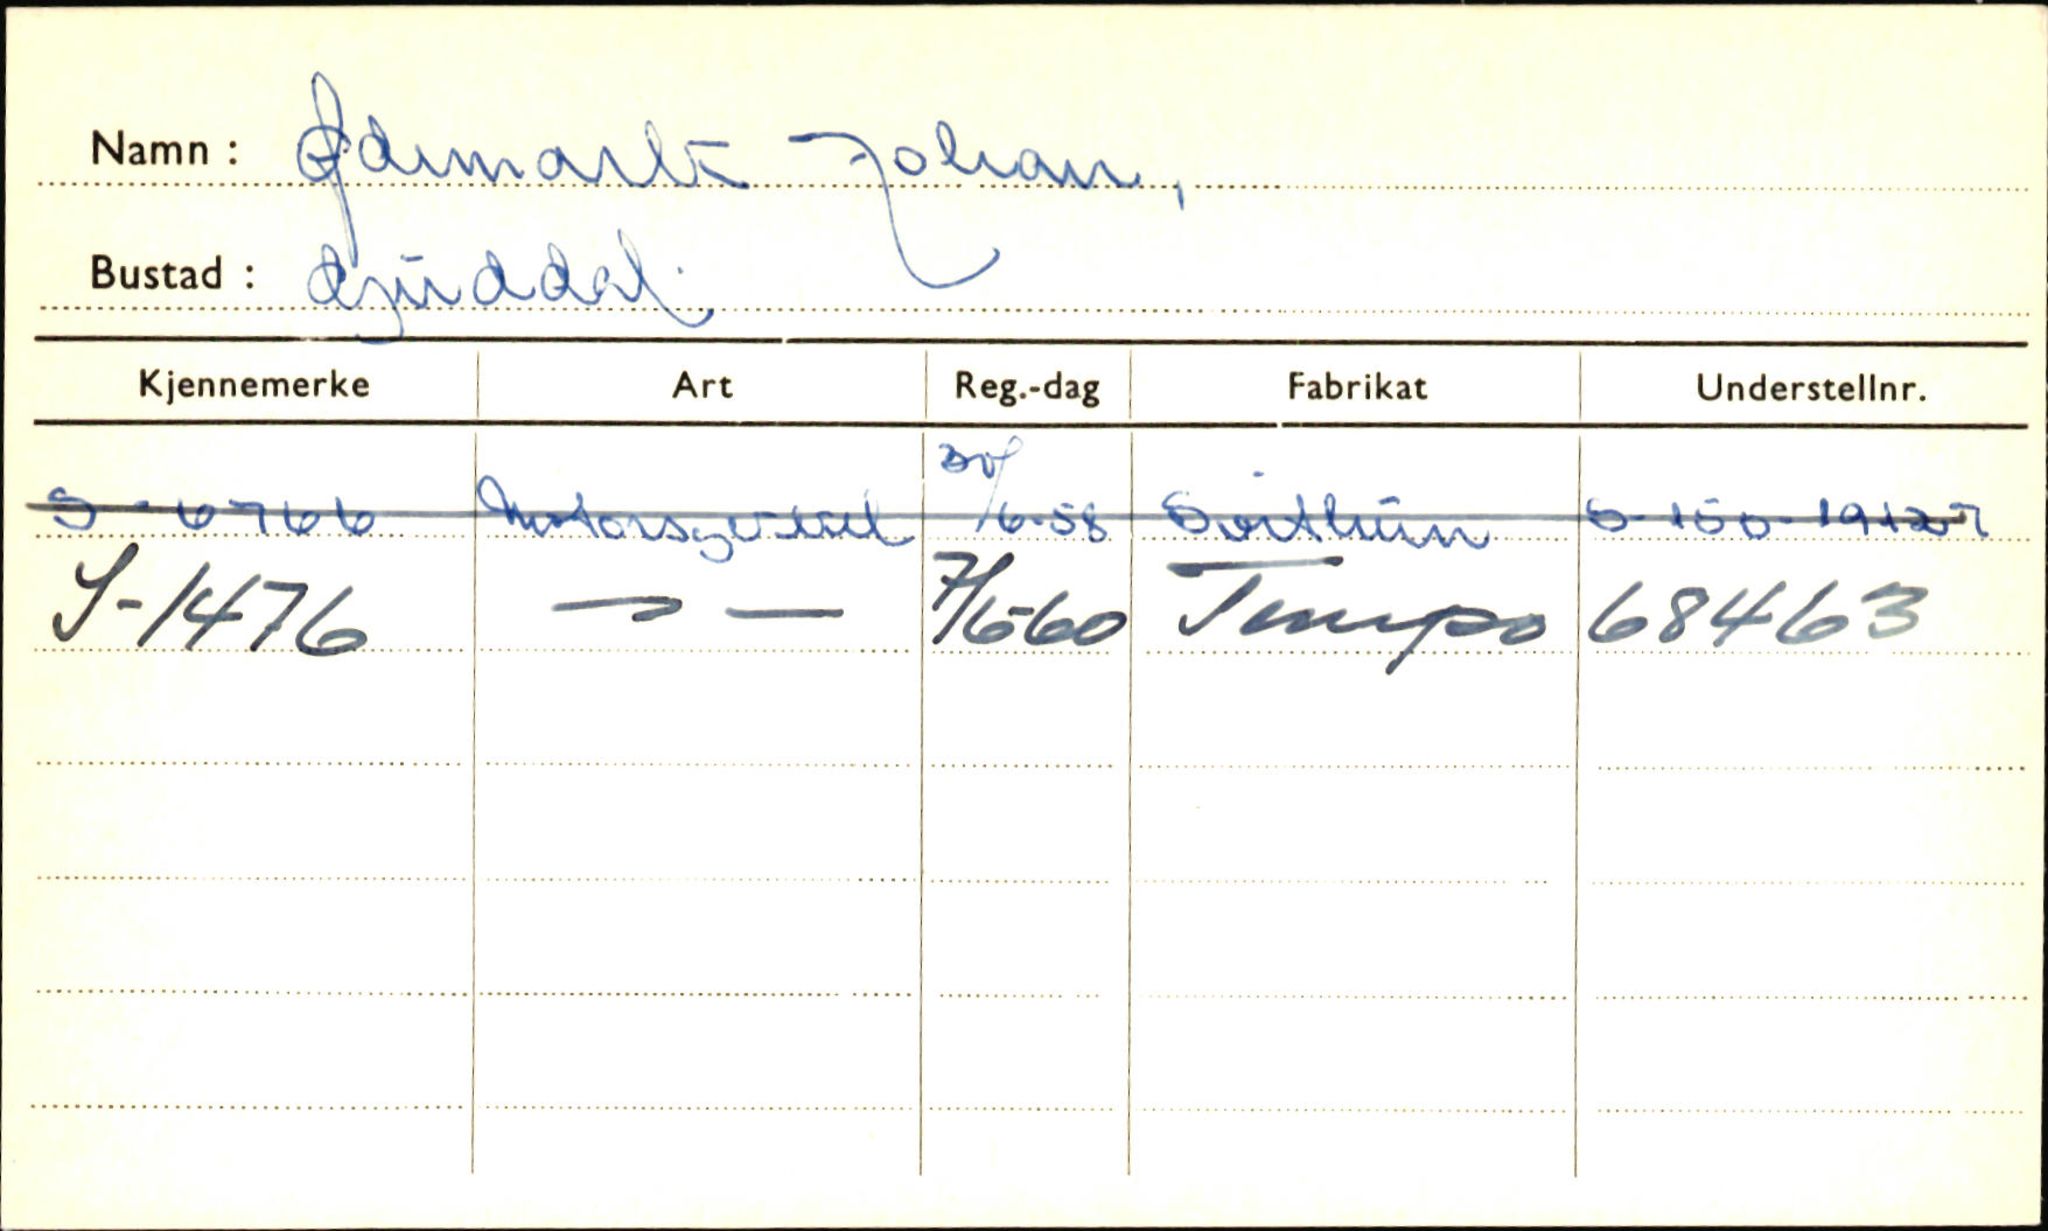 Namn : Ødemark Johan,
Bustad : Gjuddal.
Kjennemerke Art Reg.-dag Fabrikat Understellnr.
S-6766 Motorsykkel 30/6-58 S-150-19127
S-1476 — " — 7/6-60 Tempo 68463